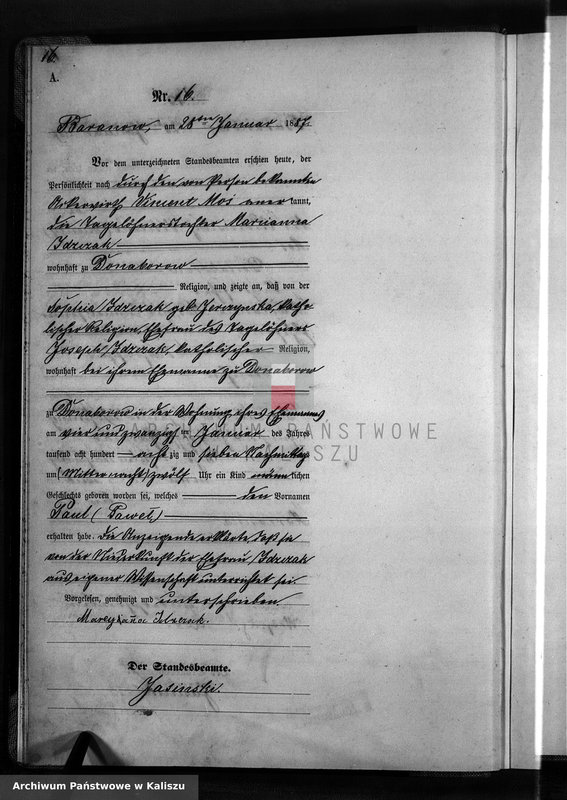 16.
A.
Nr. 16.
Baranow, am 28ten Januar 1887.
Vor dem unterzeichneten Standesbeamten erschien heute, der
Persönlichkeit nach durch den von Person bekannten
Ackerwirth Vincent Mos aner kannt,
die Tagelöhnerstochter Marianna
Idzczak
wohnhaft zu Donaborow
Religion, und zeigte an, daß von der
Sophia Idzczak geb. Jerczynska, katho-
lischer Religion, Ehefrau des Tagelöhners
Joseph Idzczak, katholischer Religion,
wohnhaft bei ihrem Ehemanne zu Donaborow
zu Donaborow in der Wohnung ihres Ehemannes
am vier und zwanzigsten Januar des Jahres
tausend acht hundert acht zig und sieben Nachmittag
um (Mitternacht) zwölf Uhr ein Kind männ lichen
Geschlechts geboren worden sei, welches den Vornamen
Paul (Paweł)
erhalten habe. Die Anzeigende erklärte, daß sie
von der Niederkunft der Ehefrau Idzczak
aus eigener Wissenschaft unterrichtet sei
Vorgelesen, genehmigt und unterschrieben
Idzczak.
Der Standesbeamte.
Jasinski.
ARCHIWUM PAŃSTWOWE
W KALISZU
Archiwum Państwowe w Kaliszu